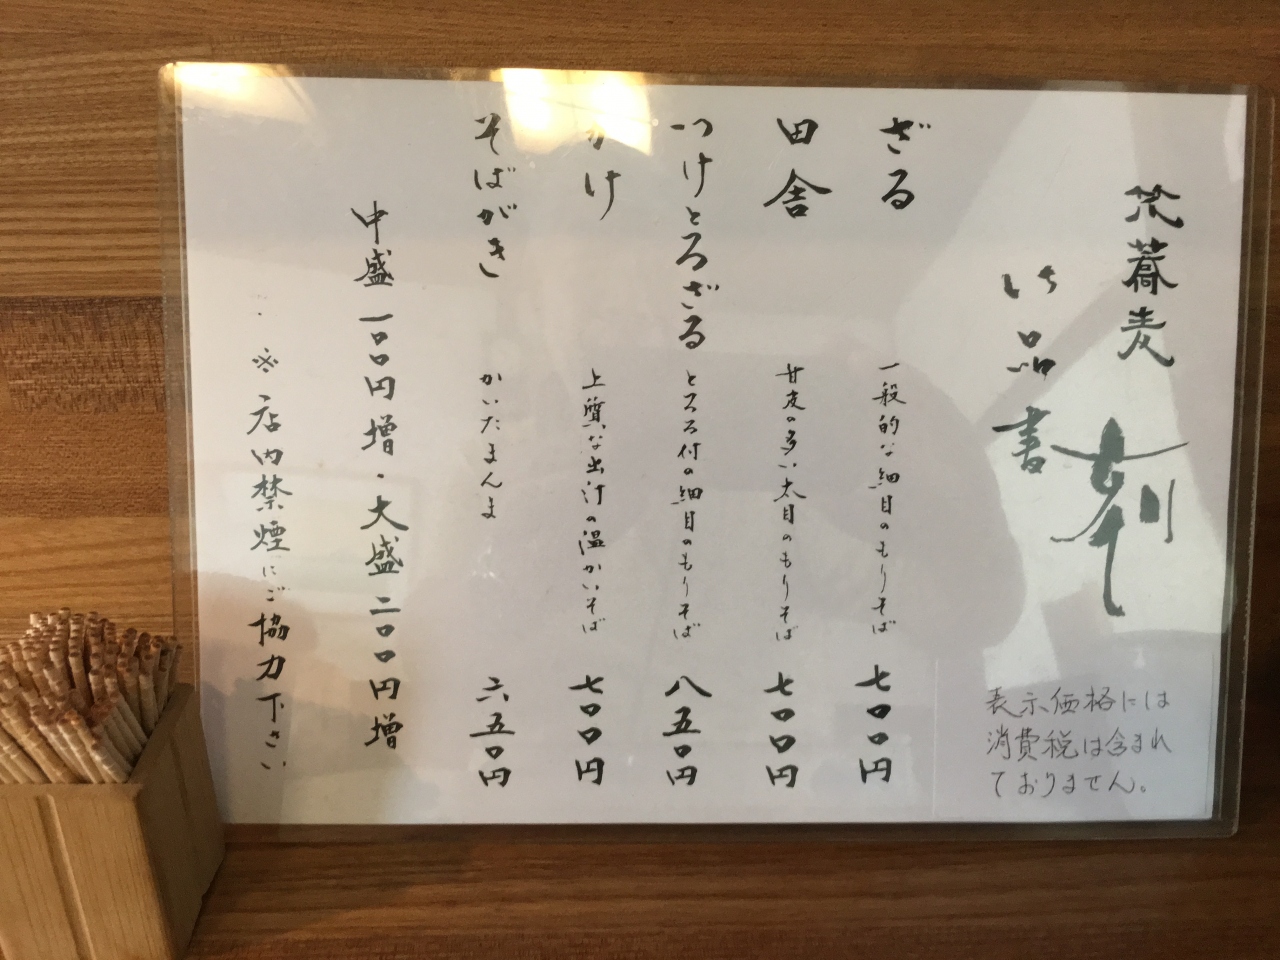 蕎麦
品書
表示価格には
消費税は含まれ
ておりません。
ざる 一般的な細目のもりそば 七〇〇円
田舎 甘皮の多い太目のもりそば 七〇〇円
つけとろざる とろろ付の細目のもりそば 八五〇円
かけ 上質な出汁の温かいそば 七〇〇円
そばがき かいたまんま 六五〇円
中盛一〇〇円増・大盛二〇〇円増
※店内禁煙にご協力下さい